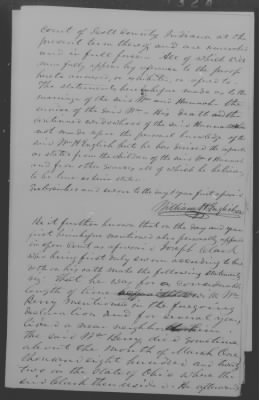 Court of Scott County Indiana at the
present term thereof and are
and in full force. All of which will
more fully appear by reference to the proof
hereto annexed, or which is
The statements hereinbefore made as to the
marriage of the said Wm and Hannah the
service of the said Wm - His death and the
continued widowhood of the said Hannah are
not made upon the personal knowledge of
said Wm H English but he has derived the
as stated from the children of the said Wm & Hannah
and from other sources all of which he believes
to be
Subscribed and sworn to the day & year first aforesaid
William H English
Be it further known that on the day and year
first hereinbefore mentioned also personally appeared
in open Court as aforesaid Joseph Clark
who being first duly sworn according to law
doth on his oath make the following statements
viz. That he was for a considerable
length of time Wm
Berry mentioned in the foregoing
declaration and for several years
lived a near neighbor
the said Wm Berry died sometime
about the month of March One
thousand eight hundred and
two in the State of Ohio where the
said Clark then resided. He